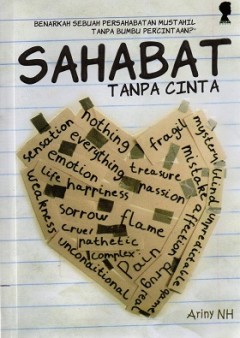 BENARKAH SEBUAH PERSAHABATAN MUSTAHIL
TANPA BUMBU PERCINTAAN?
SAHABAT
TANPA CINTA
nothing
fragil
mystery
sensation
everything
emotion
treasure
mistake
blind
unpredictable
weakness
life
happiness
passion
affection
sorrow
flame
cruel
pathetic
complex
pain
drug
real
game
unconditional
Ariny NH